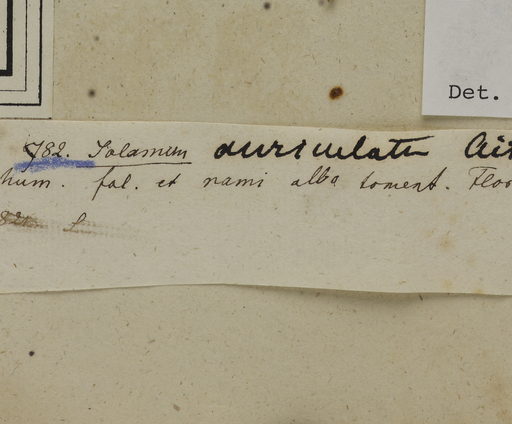 Det.
782. Solanum auriculatum Ait
hum. fol. et rami alba toment. Flor